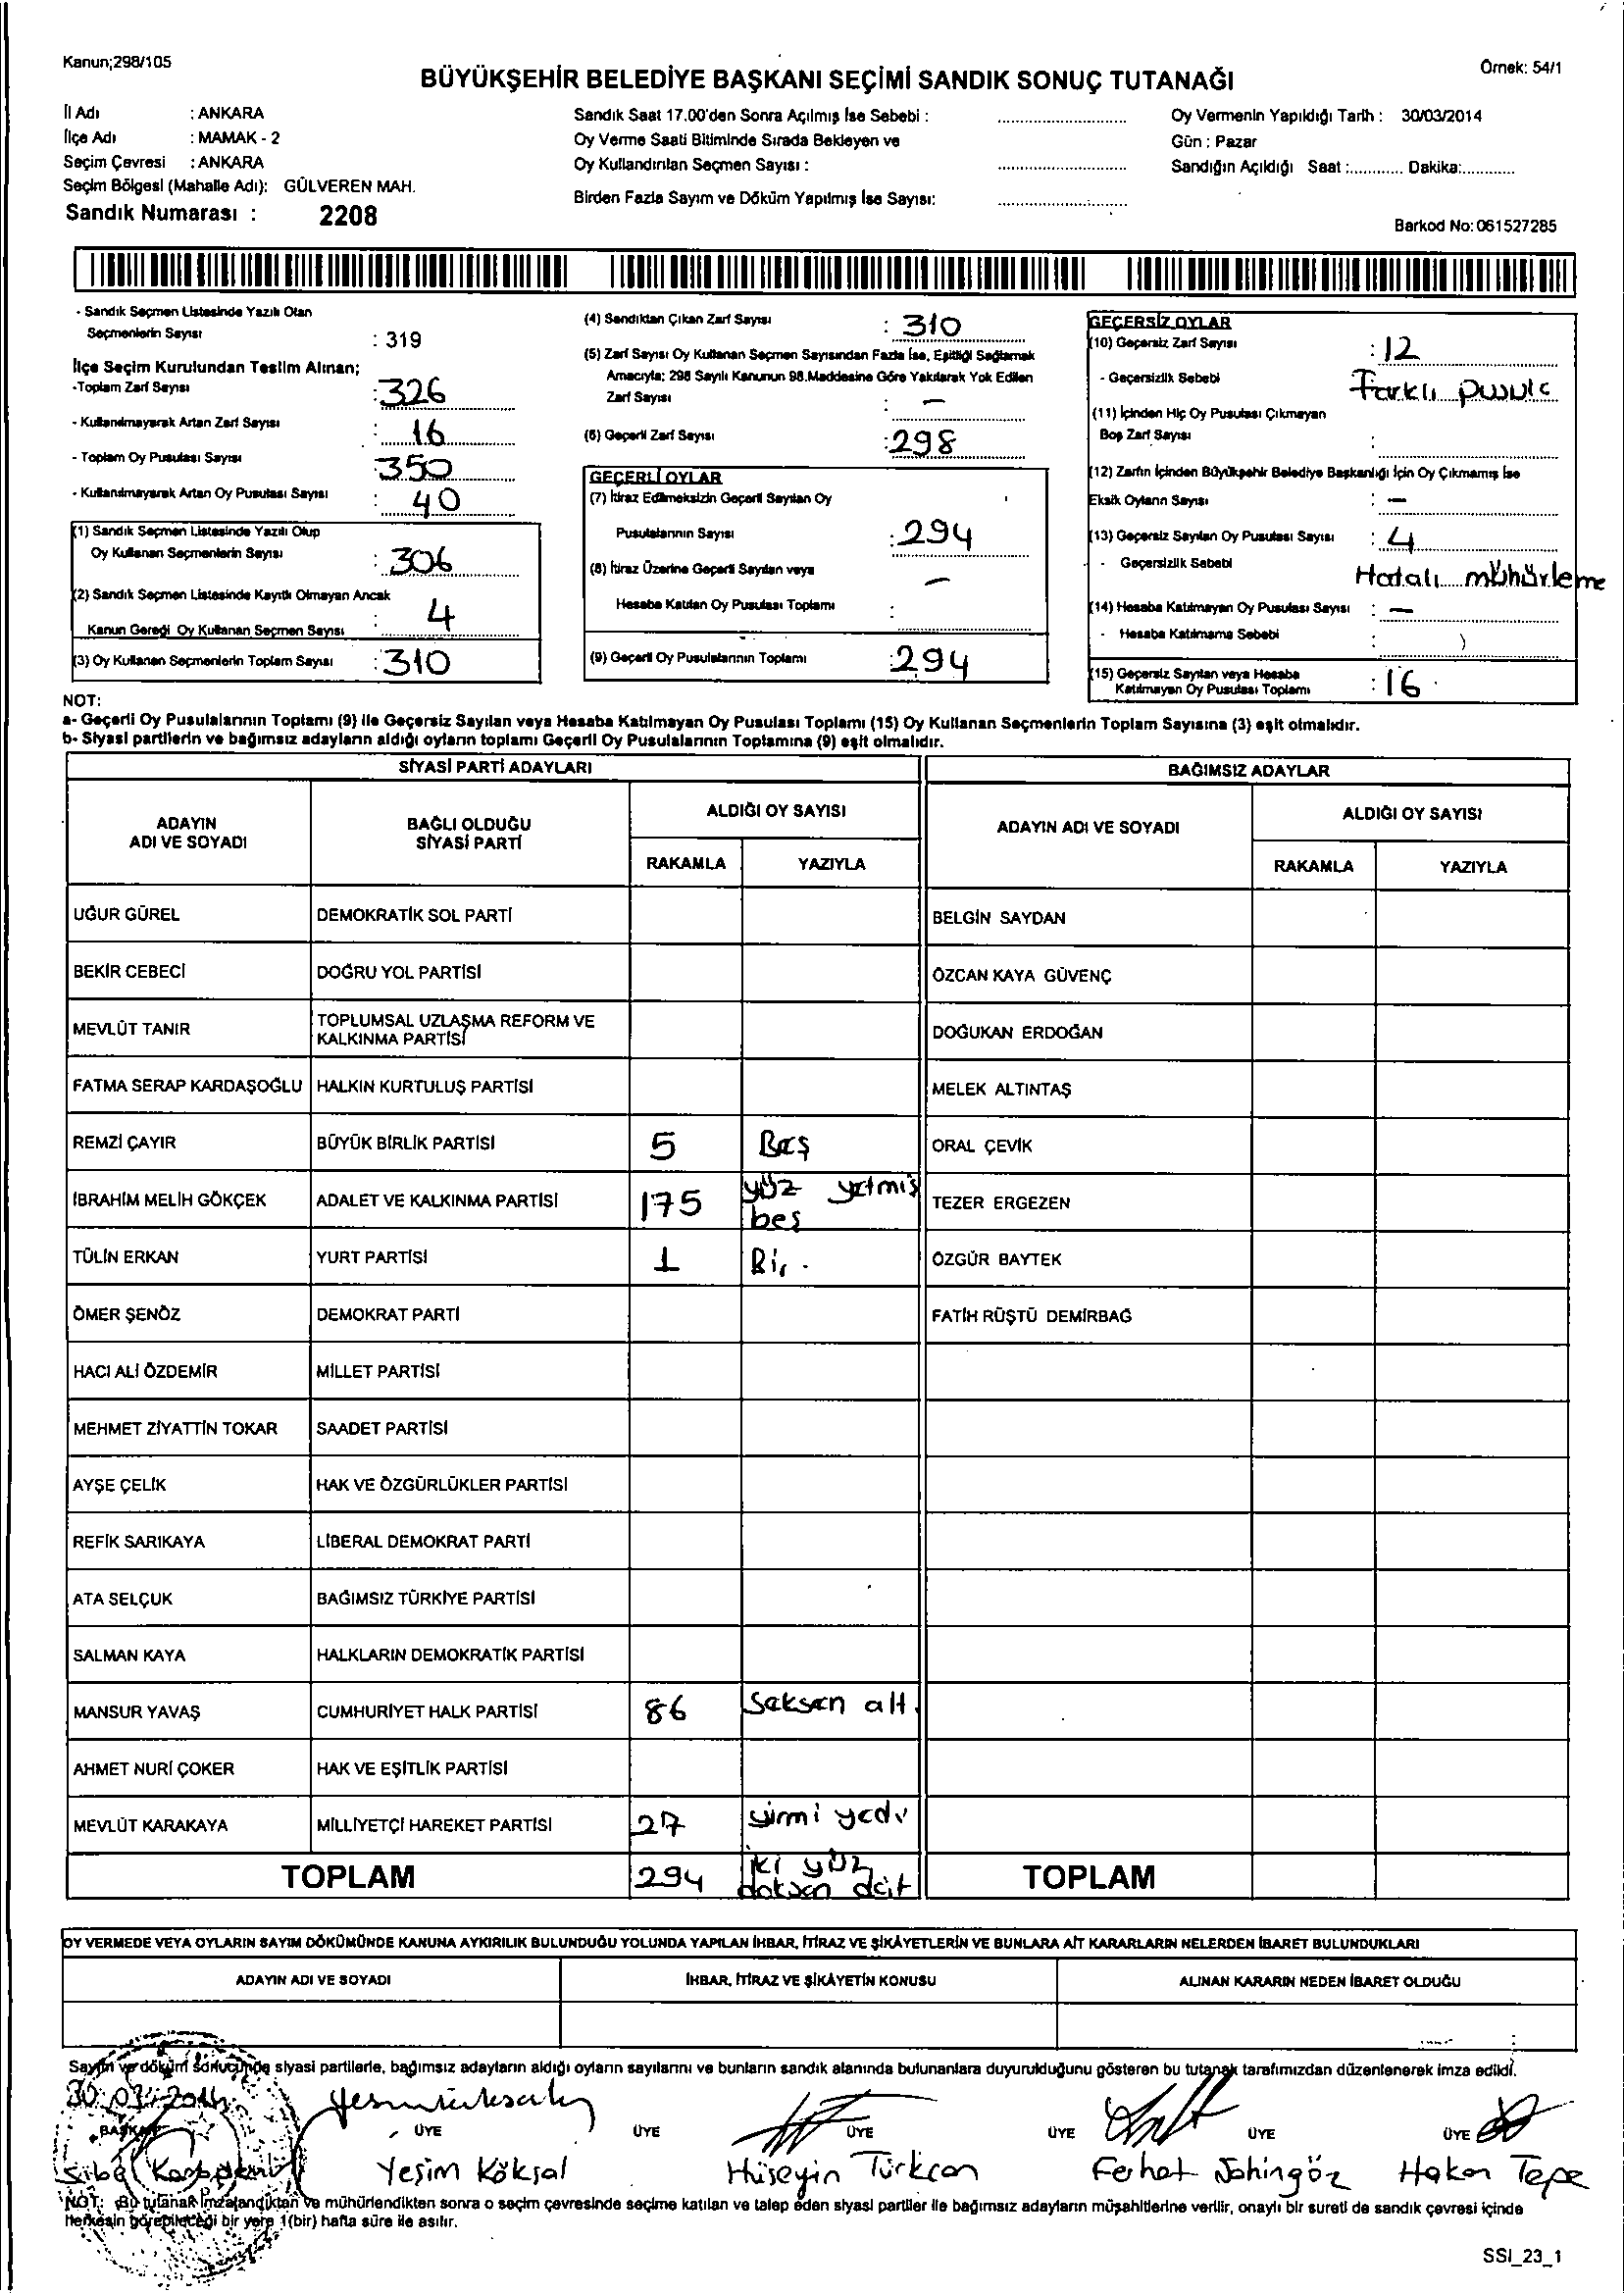 Kanun;298/105
Örnek: 54/1
BÜYÜKŞEHİR BELEDİYE BAŞKANI SEÇİMİ SANDIK SONUÇ TUTANAĞI
İl Adı : ANKARA
İlçe Adı : MAMAK - 2
Seçim Çevresi : ANKARA
Seçim Bölgesi (Mahalle Adı): GÜLVEREN MAH.
Sandık Numarası : 2208
Sandık Saat 17.00'den Sonra Açılmış İse Sebebi :
Oy Verme Saati Bitiminde Sırada Bekleyen ve
Oy Kullandırılan Seçmen Sayısı :
Birden Fazla Sayım ve Döküm Yapılmış İse Sayısı:
Oy Vermenin Yapıldığı Tarih : 30/03/2014
Gün : Pazar
Sandığın Açıldığı Saat :............ Dakika:............
Barkod No: 061527285
- Sandık Seçmen Listesinde Yazılı Olan
Seçmenlerin Sayısı : 319
İlçe Seçim Kurulundan Teslim Alınan;
-Toplam Zarf Sayısı : 326
- Kullanılmayarak Artan Zarf Sayısı : 16
- Toplam Oy Pusulası Sayısı : 350
- Kullanılmayarak Artan Oy Pusulası Sayısı : 40
(1) Sandık Seçmen Listesinde Yazılı Olup
Oy Kullanan Seçmenlerin Sayısı : 306
(2) Sandık Seçmen Listesinde Kayıtlı Olmayan Ancak
Kanun Gereği Oy Kullanan Seçmen Sayısı : 4
(3) Oy Kullanan Seçmenlerin Toplam Sayısı : 310
(4) Sandıktan Çıkan Zarf Sayısı : 310
(5) Zarf Sayısı Oy Kullanan Seçmen Sayısından Fazla İse, Eşitliği Sağlamak
Amacıyla; 298 Sayılı Kanunun 98.Maddesine Göre Yakılarak Yok Edilen
Zarf Sayısı : -
(6) Geçerli Zarf Sayısı : 298
GEÇERLİ OYLAR
(7) İtiraz Edilmeksizin Geçerli Sayılan Oy
Pusulalarının Sayısı : 294
(8) İtiraz Üzerine Geçerli Sayılan veya
Hesaba Katılan Oy Pusulası Toplamı : -
(9) Geçerli Oy Pusulalarının Toplamı : 294
GEÇERSİZ OYLAR
(10) Geçersiz Zarf Sayısı : 12
- Geçersizlik Sebebi Farklı pusula
(11) İçinden Hiç Oy Pusulası Çıkmayan
Boş Zarf Sayısı :
(12) Zarfın İçinden Büyükşehir Belediye Başkanlığı İçin Oy Çıkmamış İse
Eksik Oyların Sayısı : -
(13) Geçersiz Sayılan Oy Pusulası Sayısı : 4
- Geçersizlik Sebebi Hatalı mühürleme
(14) Hesaba Katılmayan Oy Pusulası Sayısı : -
- Hesaba Katılmama Sebebi :
(15) Geçersiz Sayılan veya Hesaba
Katılmayan Oy Pusulası Toplamı : 16
NOT:
a- Geçerli Oy Pusulalarının Toplamı (9) ile Geçersiz Sayılan veya Hesaba Katılmayan Oy Pusulası Toplamı (15) Oy Kullanan Seçmenlerin Toplam Sayısına (3) eşit olmalıdır.
b- Siyasi partilerin ve bağımsız adayların aldığı oyların toplamı Geçerli Oy Pusulalarının Toplamına (9) eşit olmalıdır.
SİYASİ PARTİ ADAYLARI BAĞIMSIZ ADAYLAR
ADAYIN ADI VE SOYADI BAĞLI OLDUĞU SİYASİ PARTİ ALDIĞI OY SAYISI ADAYIN ADI VE SOYADI ALDIĞI OY SAYISI
RAKAMLA YAZIYLA RAKAMLA YAZIYLA
UĞUR GÜREL DEMOKRATİK SOL PARTİ BELGİN SAYDAN
BEKİR CEBECİ DOĞRU YOL PARTİSİ ÖZCAN KAYA GÜVENÇ
MEVLÜT TANIR TOPLUMSAL UZLAŞMA REFORM VE KALKINMA PARTİSİ DOĞUKAN ERDOĞAN
FATMA SERAP KARDAŞOĞLU HALKIN KURTULUŞ PARTİSİ MELEK ALTINTAŞ
REMZİ ÇAYIR BÜYÜK BİRLİK PARTİSİ 5 Beş ORAL ÇEVİK
İBRAHİM MELİH GÖKÇEK ADALET VE KALKINMA PARTİSİ 175 yüz yetmiş beş TEZER ERGEZEN
TÜLİN ERKAN YURT PARTİSİ 1 Bir . ÖZGÜR BAYTEK
ÖMER ŞENÖZ DEMOKRAT PARTİ FATİH RÜŞTÜ DEMİRBAĞ
HACI ALİ ÖZDEMİR MİLLET PARTİSİ
MEHMET ZİYATTİN TOKAR SAADET PARTİSİ
AYŞE ÇELİK HAK VE ÖZGÜRLÜKLER PARTİSİ
REFİK SARIKAYA LİBERAL DEMOKRAT PARTİ
ATA SELÇUK BAĞIMSIZ TÜRKİYE PARTİSİ
SALMAN KAYA HALKLARIN DEMOKRATİK PARTİSİ
MANSUR YAVAŞ CUMHURİYET HALK PARTİSİ 86 Seksen altı
AHMET NURİ ÇOKER HAK VE EŞİTLİK PARTİSİ
MEVLÜT KARAKAYA MİLLİYETÇİ HAREKET PARTİSİ 27 yirmi yedi
TOPLAM 294 iki yüz doksan dört TOPLAM
OY VERMEDE VEYA OYLARIN SAYIM DÖKÜMÜNDE KANUNA AYKIRILIK BULUNDUĞU YOLUNDA YAPILAN İHBAR, İTİRAZ VE ŞİKÂYETLERİN VE BUNLARA AİT KARARLARIN NELERDEN İBARET BULUNDUKLARI
ADAYIN ADI VE SOYADI İHBAR, İTİRAZ VE ŞİKÂYETİN KONUSU ALINAN KARARIN NEDEN İBARET OLDUĞU
Sayım ve döküm sonucunda siyasi partilerle, bağımsız adayların aldığı oyların sayılarını ve bunların sandık alanında bulunanlara duyurulduğunu gösteren bu tutanak tarafımızdan düzenlenerek imza edildi.
30.03.2014
BAŞKAN ÜYE ÜYE ÜYE ÜYE ÜYE ÜYE
Sibel Yeşim Köksal Hüseyin Türkcan Ferhat Şahingöz Hakan Tepe
NOT: Bu tutanak imzalandıktan ve mühürlendikten sonra o seçim çevresinde seçime katılan ve talep eden siyasi partiler ile bağımsız adayların müşahitlerine verilir, onaylı bir sureti de sandık çevresi içinde
herkesin görebileceği bir yere 1(bir) hafta süre ile asılır.
SSI_23_1